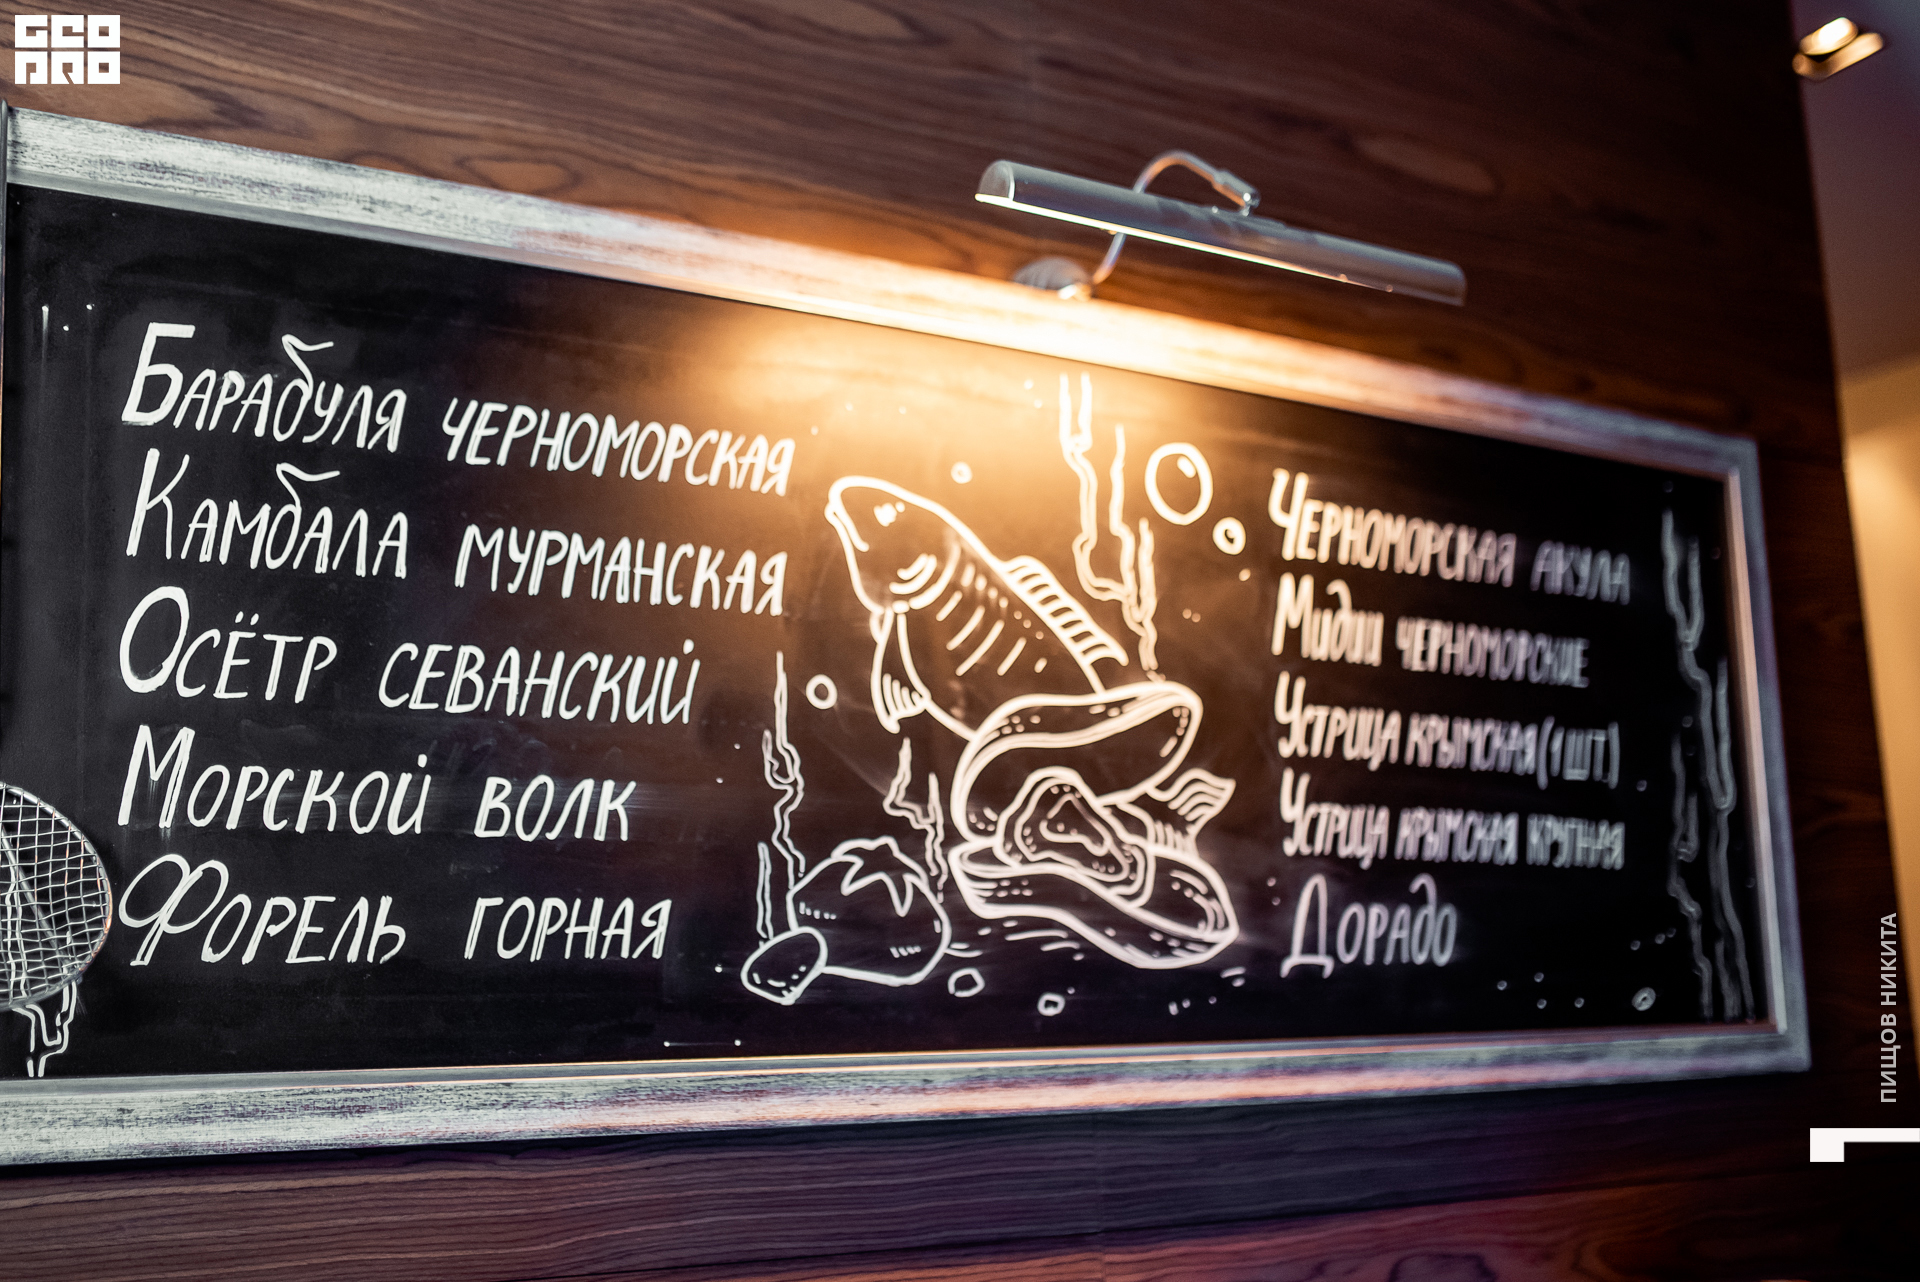 GEO
PRO
Барабуля черноморская
Камбала мурманская
Осётр севанский
Морской волк
Форель горная
Черноморская акула
Мидии черноморские
Устрица крымская (1 шт.)
Устрица крымская крупная
Дорадо
ПИЩОВ НИКИТА